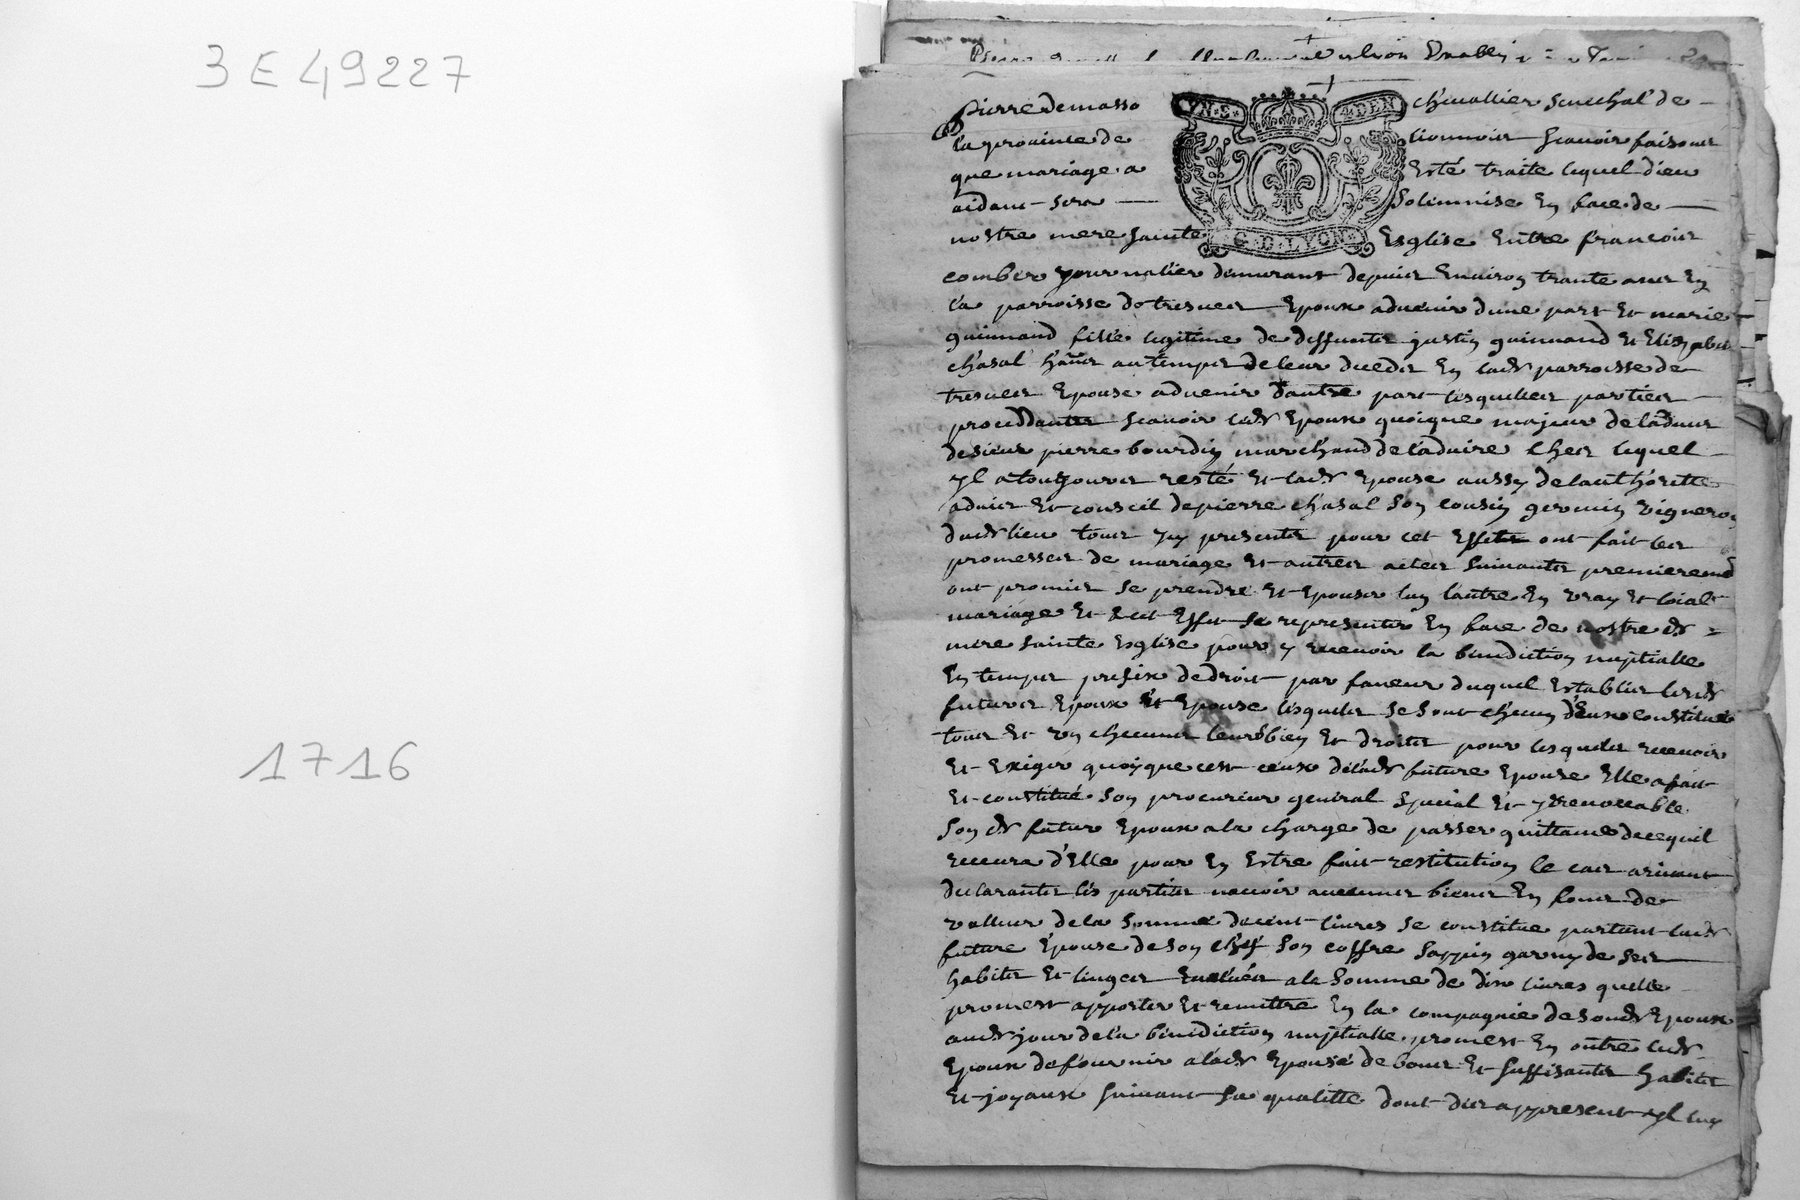 3 E 49227
1716
Pierre demasso chevallier senechal de
la province de lionnois scavoir faisons
que mariage a esté traité lequel dieu
aidant sera solemnise en face de
nostre mere sainte Esglise Entre francois
combes journalier demurant depuis Environ trante ans En
la parroisse de tresves Epoux advenir dune part Et marie
guinnand fille legitime de deffuncts justin guinnand Et Elizabet
chasal au temps de leur deceds En lad parroisse de
tresves Epouse advenir dautre part lesquelles parties
proceddantes scavoir led Epoux quoique majeur de ladvis
de sieur pierre bourdin marchand de ladvire ches lequel
yl a toutjours resté Et lad Epouse aussy de lauthoritte
advis Et conseil de pierre chasal son cousin germin vigneron
dud lieu tous yci presents pour cet Effet ont fait les
promesses de mariage Et autres actes suivants premierement
ont promis se prendre Et Epouser lun lautre En vray Et loial
mariage Et a cet Effet se representer En face de nostre d
mere sainte Esglise pour y recevoir la benediction nuptialle
En temps prefix de droit par faveur duquel Establis lesd
futurs Epoux Et Epouse lesquels se sont checun d'eux constitué
tous Et un checuns leurs bien Et droits pour lesquels recevoir
Et Exiger quoyque cest ceux de lad future Epouse Elle a fait
Et constitué son procureur general special Et yrrevocable
son d futur Epoux a la charge de passer quittance de ce quil
recevra d'Elle pour En Estre fait restitution le cas arivant
declarants les parties navoir aucuns biens En fons de
valleur de la somme de cent livres se constitue partant lad
future Epouse de son chef son coffre sappin garny de ses
habits Et linges Evalués a la somme de dix livres quelle
promest apporter Et remettre En la compagnie de sond Epoux
aud jour de la benediction nuptialle promest En outre led
Epoux de fournir a lad Epouse de bons Et suffisants habits
Et joyaux suivant sa qualitte dont des appresent yl luy